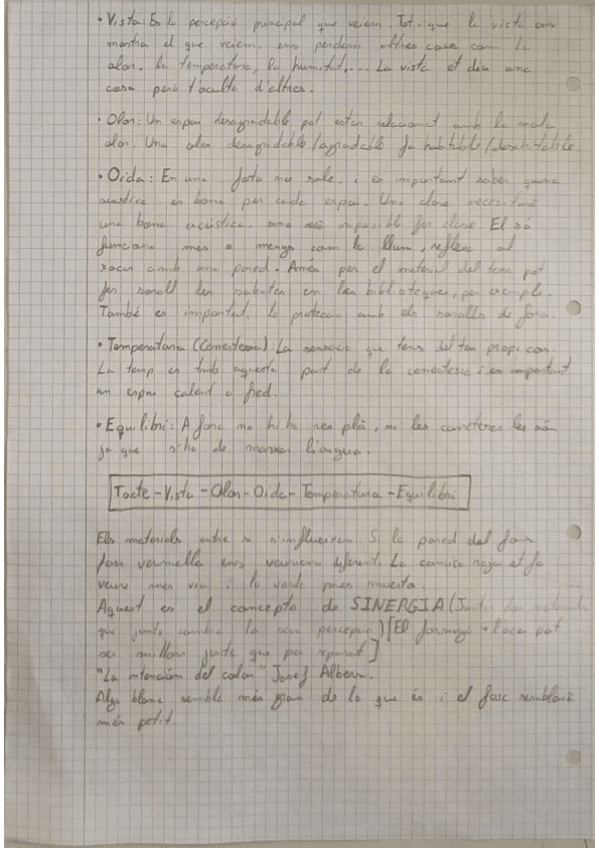 • Vista: Es la percepció principal que veiem. Tot i que la vista ens
mostra el que veiem, ens perdem altres coses com la
olor, la temperatura, la humitat,... La vista et deu una
cosa però t'oculta d'altres.
• Olor: Un espai desagradable pot estar relacionat amb la mala
olor. Una olor desagradable/agradable fa habitable/deshabitable.
• Oida: En una festa no sale, i es important saber quina
acústica es bona per cada espai. Una classe necesitarà
una bona acústica, sino serà impossible fer classe. El só
funciona mes o menys com la llum, reflexa al
xocar amb una pared. Amés per el material del terra pot
fer soroll les sabates en les biblioteques, per exemple.
També es important la protecció amb els sorolls de fora.
• Temperatura (Cenestesia): La sensació que tens del teu propi cos.
La temp es tmb aquesta part de la cenestesia i es important
un espai calent o fred.
• Equilibri: A fora no hi ha res plà, ni les carreteres les són
ja que s'ha de marxar l'aigua.
Tacte - Vista - Olor - Oida - Temperatura - Equilibri
Els materials entre si s'influeixen. Si la pared del fons
fos vermella ens veuriem diferent. La camisa roja et fa
veure mes viu i la verda mes muerto.
Aquest es el concepte de SINERGIA (Juntar dos materials
que junts cambia la seva percepció) [El formigó + l'acer pot
ser millor junts que per separat]
"La intención del color" Josef Albers.
Algo blanc sembla més gran de lo que és i el fosc semblarà
més petit.